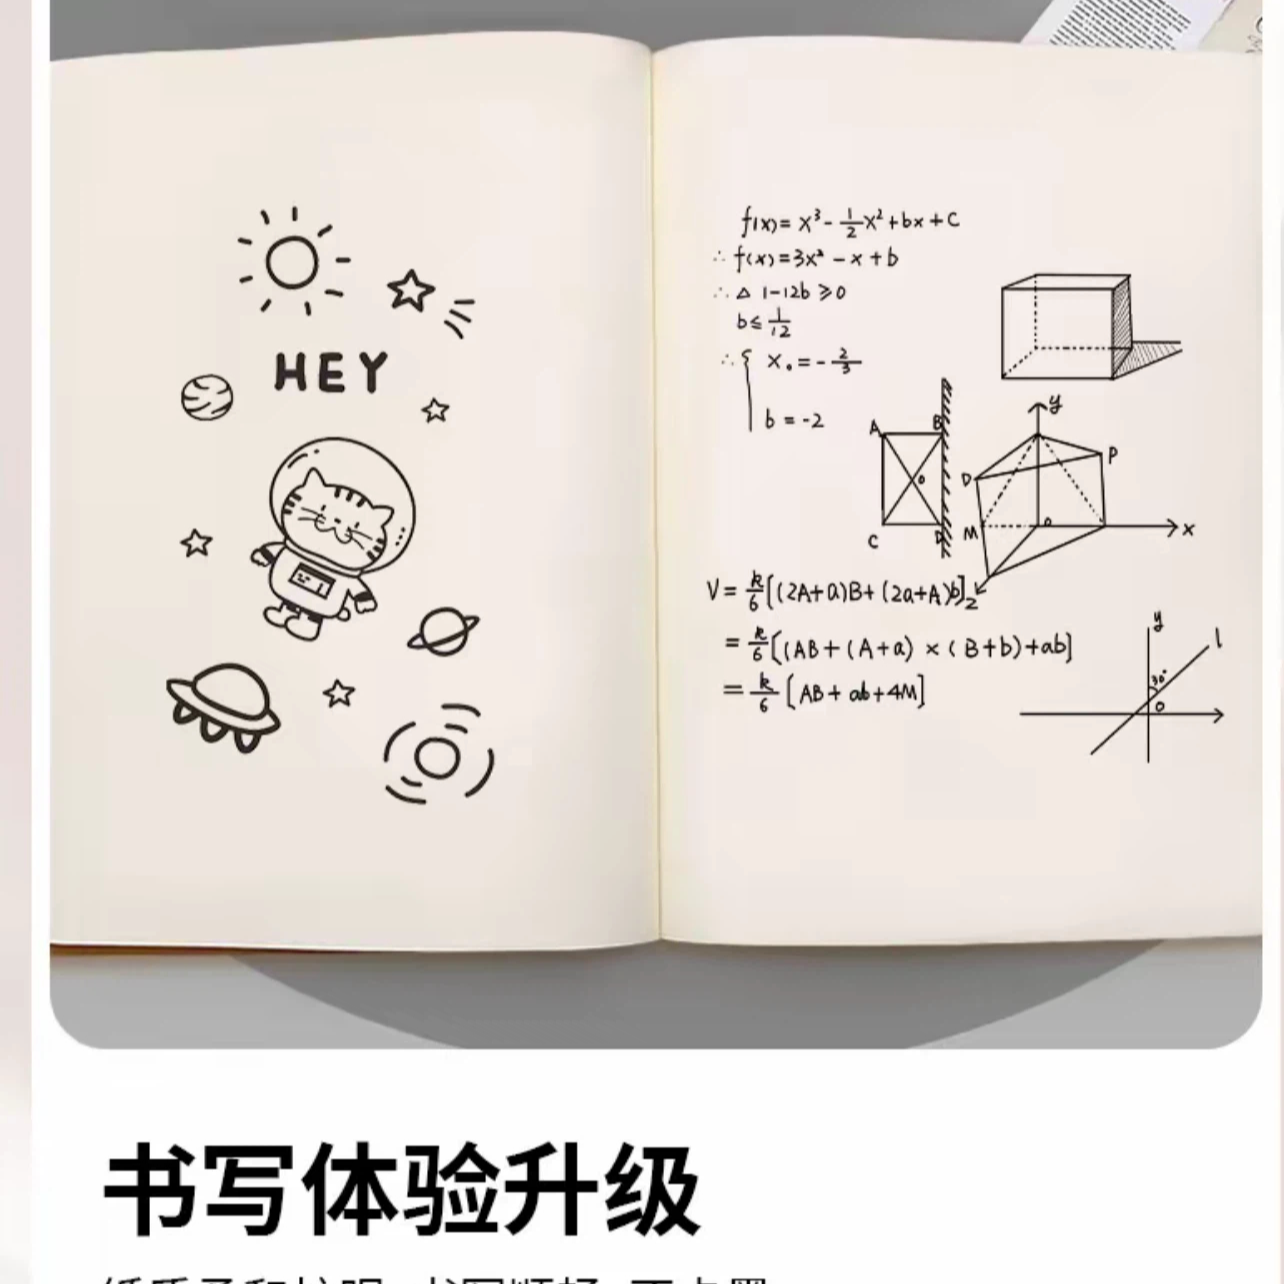 HEY
f(x)= x³-½x²+bx+c
∴ f(x)=3x²-x+b
∴ △ 1-12b ≥0
b≤ 1/12
∴ { x₀=-2/3
b=-2
A B
P
D
C
M
y
x
o
V= k/6[(2A+a)B+(2a+A)b]
= k/6[(AB+(A+a)×(B+b)+ab]
= k/6[AB+ab+4M]
z
y
l
30°
o
书写体验升级